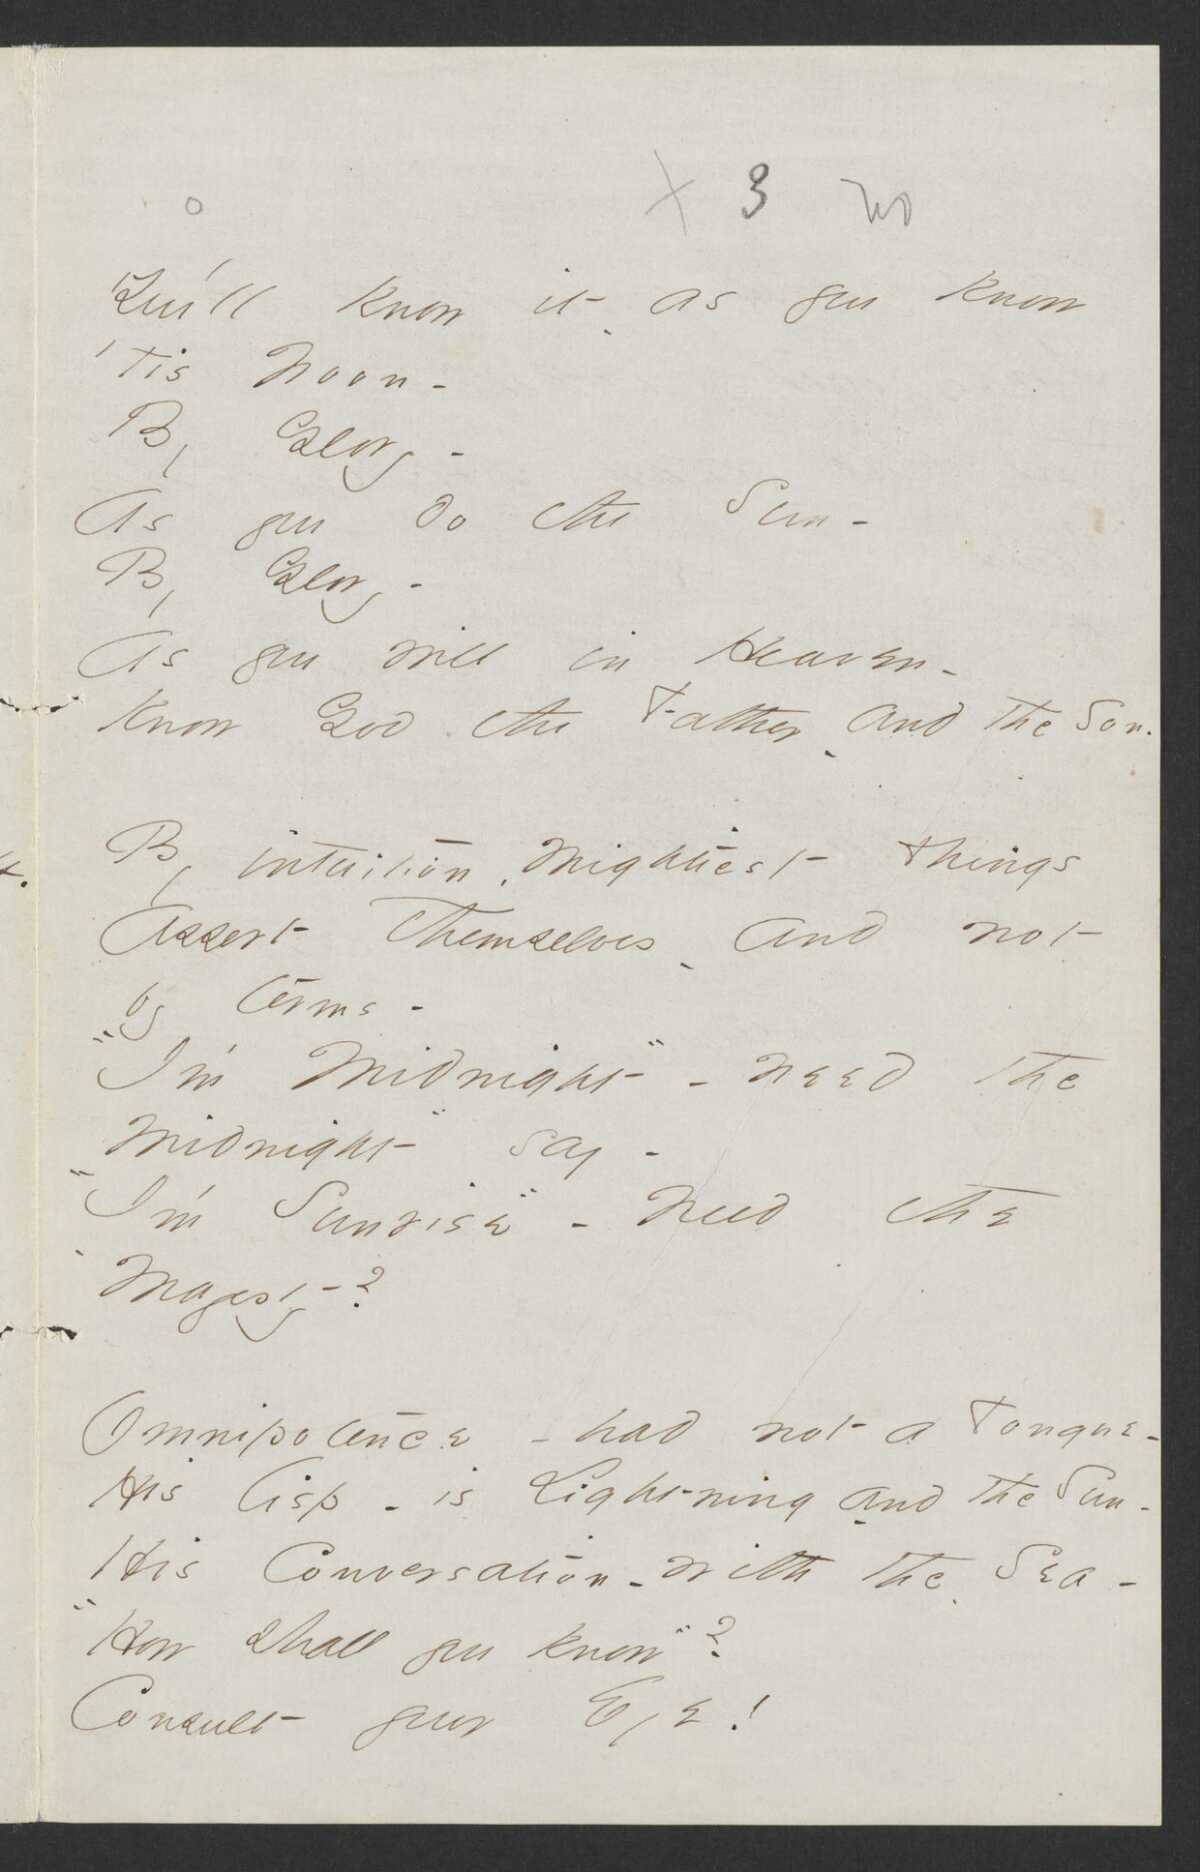 o x 3 no
You'll know it - as you know
'tis Noon -
By Glory -
As you do the Sun -
By Glory -
As you will in Heaven -
Know God the Father - and the Son.
t.
By intuition, Mightiest things
Assert themselves - and not
by terms -
"I'm Midnight" - need the
Midnight say -
"I'm Sunrise" - Need the
Majesty?
Omnipotence - had not a Tongue -
His lisp - is Lightning - and the Sun -
His Conversation - with the Sea -
"How shall you know"?
Consult your Eye!